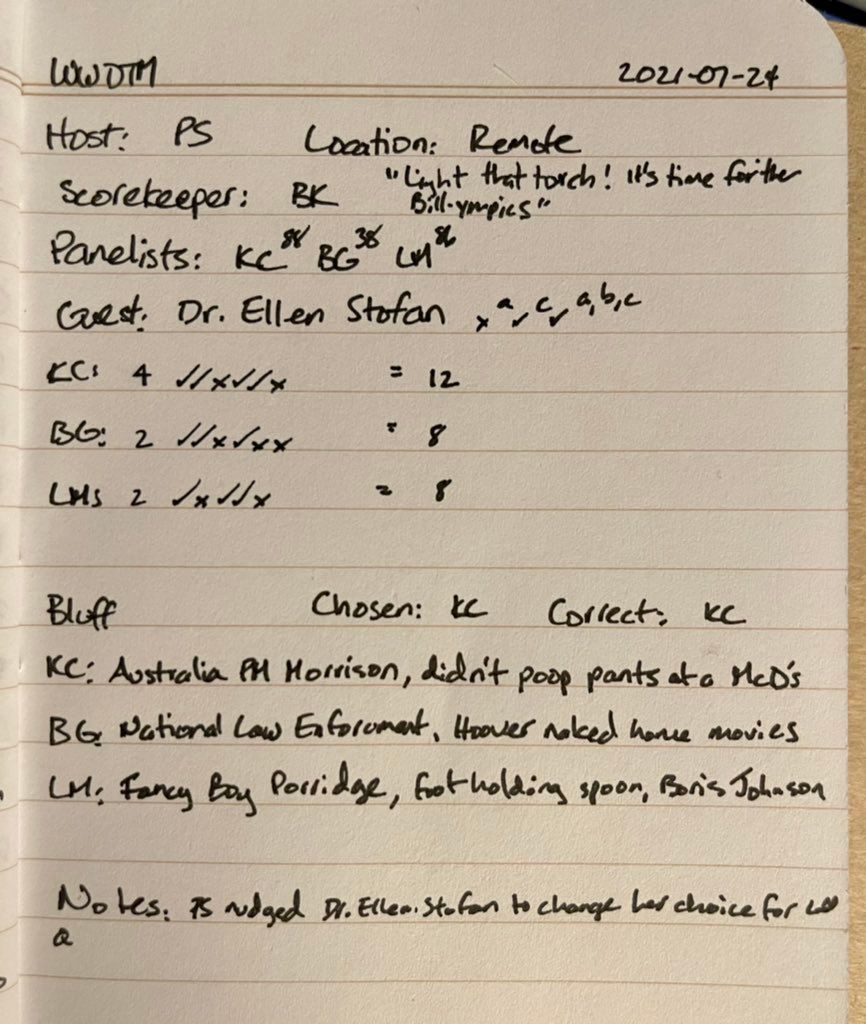 WWDTM 2021-07-24
Host: PS Location: Remote
Scorekeeper: BK "Light that torch! It's time for the
Bill-ympics"
Panelists: KC BG LM
Guest: Dr. Ellen Stofan x a ✓ c ✓ a, b, c
KC: 4 ✓✓x✓✓x = 12
BG: 2 ✓✓x✓xx = 8
LM: 2 ✓x✓✓x = 8
Bluff Chosen: KC Correct: KC
KC: Australia PM Morrison, didn't poop pants at a McD's
BG: National Law Enforcment, Hoover naked home movies
LM: Fancy Boy Porridge, foot holding spoon, Boris Johnson
Notes: PS nudged Dr. Ellen Stofan to change her choice for
Q